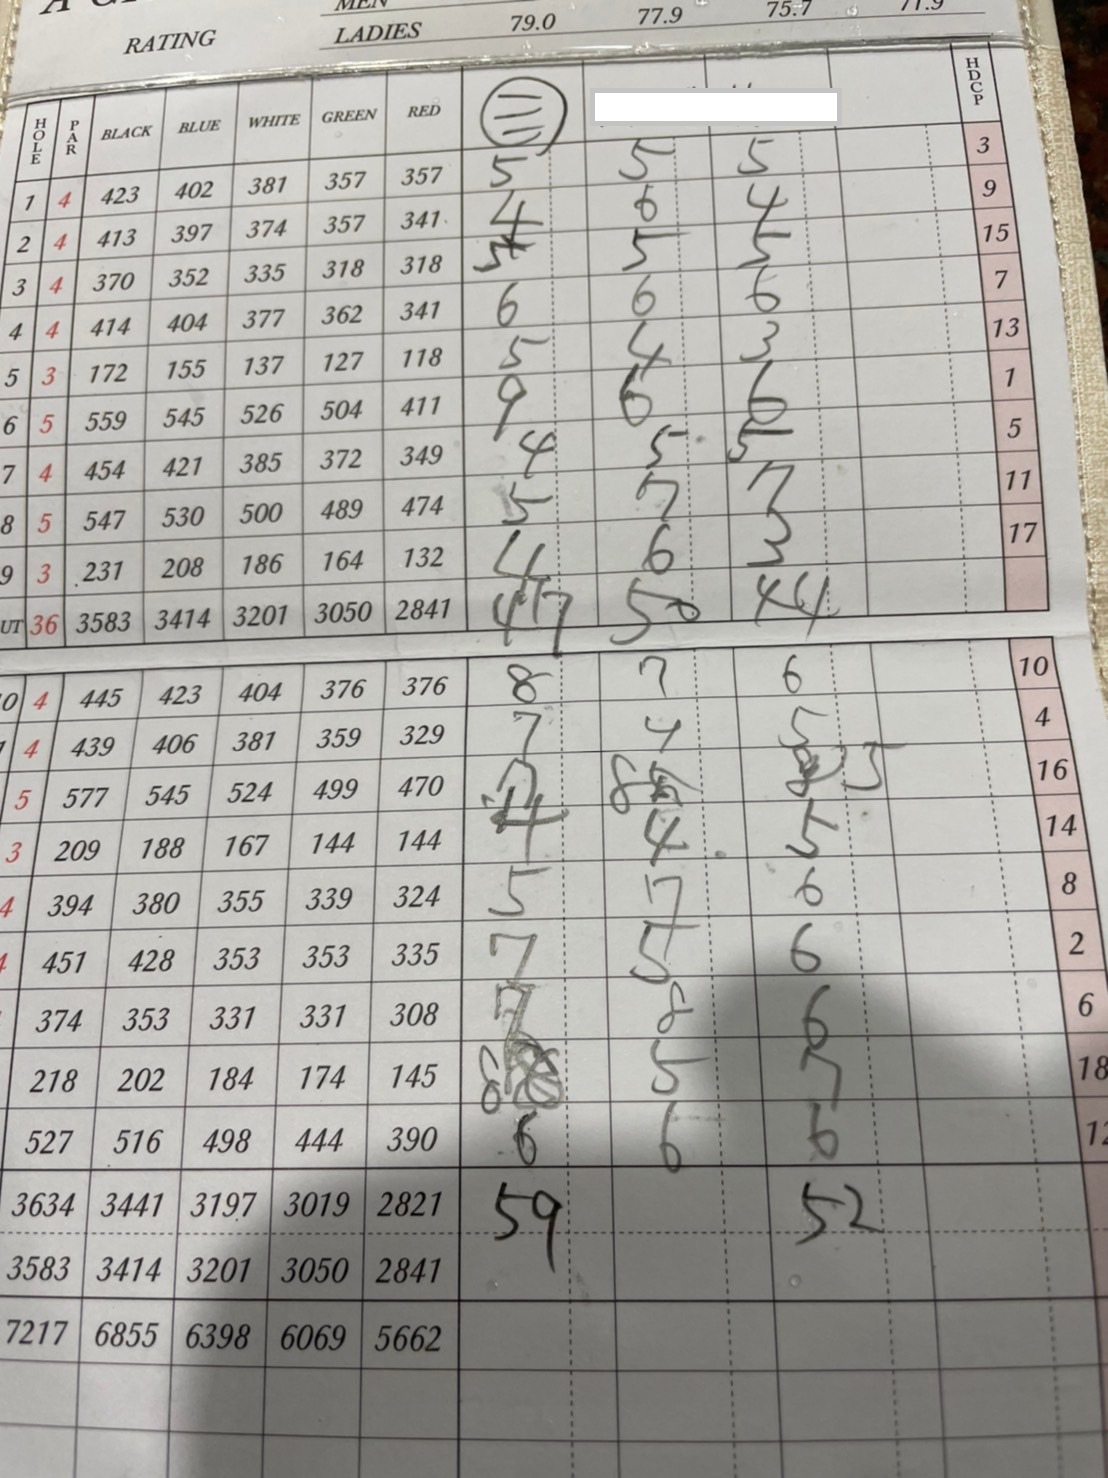 RATING
LADIES 79.0 77.9 75.7 71.9
HOLE PAR BLACK BLUE WHITE GREEN RED 三 HDCP
1 4 423 402 381 357 357 5 5 5 3
2 4 413 397 374 357 341 4 6 4 9
3 4 370 352 335 318 318 5 5 5 15
4 4 414 404 377 362 341 6 6 6 7
5 3 172 155 137 127 118 5 4 3 13
6 5 559 545 526 504 411 9 6 6 1
7 4 454 421 385 372 349 4 5 5 5
8 5 547 530 500 489 474 5 7 7 11
9 3 231 208 186 164 132 4 6 3 17
UT 36 3583 3414 3201 3050 2841 47 50 44
0 4 445 423 404 376 376 8 7 6 10
4 439 406 381 359 329 7 4 5 4
5 577 545 524 499 470 7 8 5 16
3 209 188 167 144 144 4 4 5 14
4 394 380 355 339 324 5 7 6 8
4 451 428 353 353 335 7 5 6 2
374 353 331 331 308 7 8 6 6
218 202 184 174 145 8 5 7 18
527 516 498 444 390 6 6 6 12
3634 3441 3197 3019 2821 59 52
3583 3414 3201 3050 2841
7217 6855 6398 6069 5662